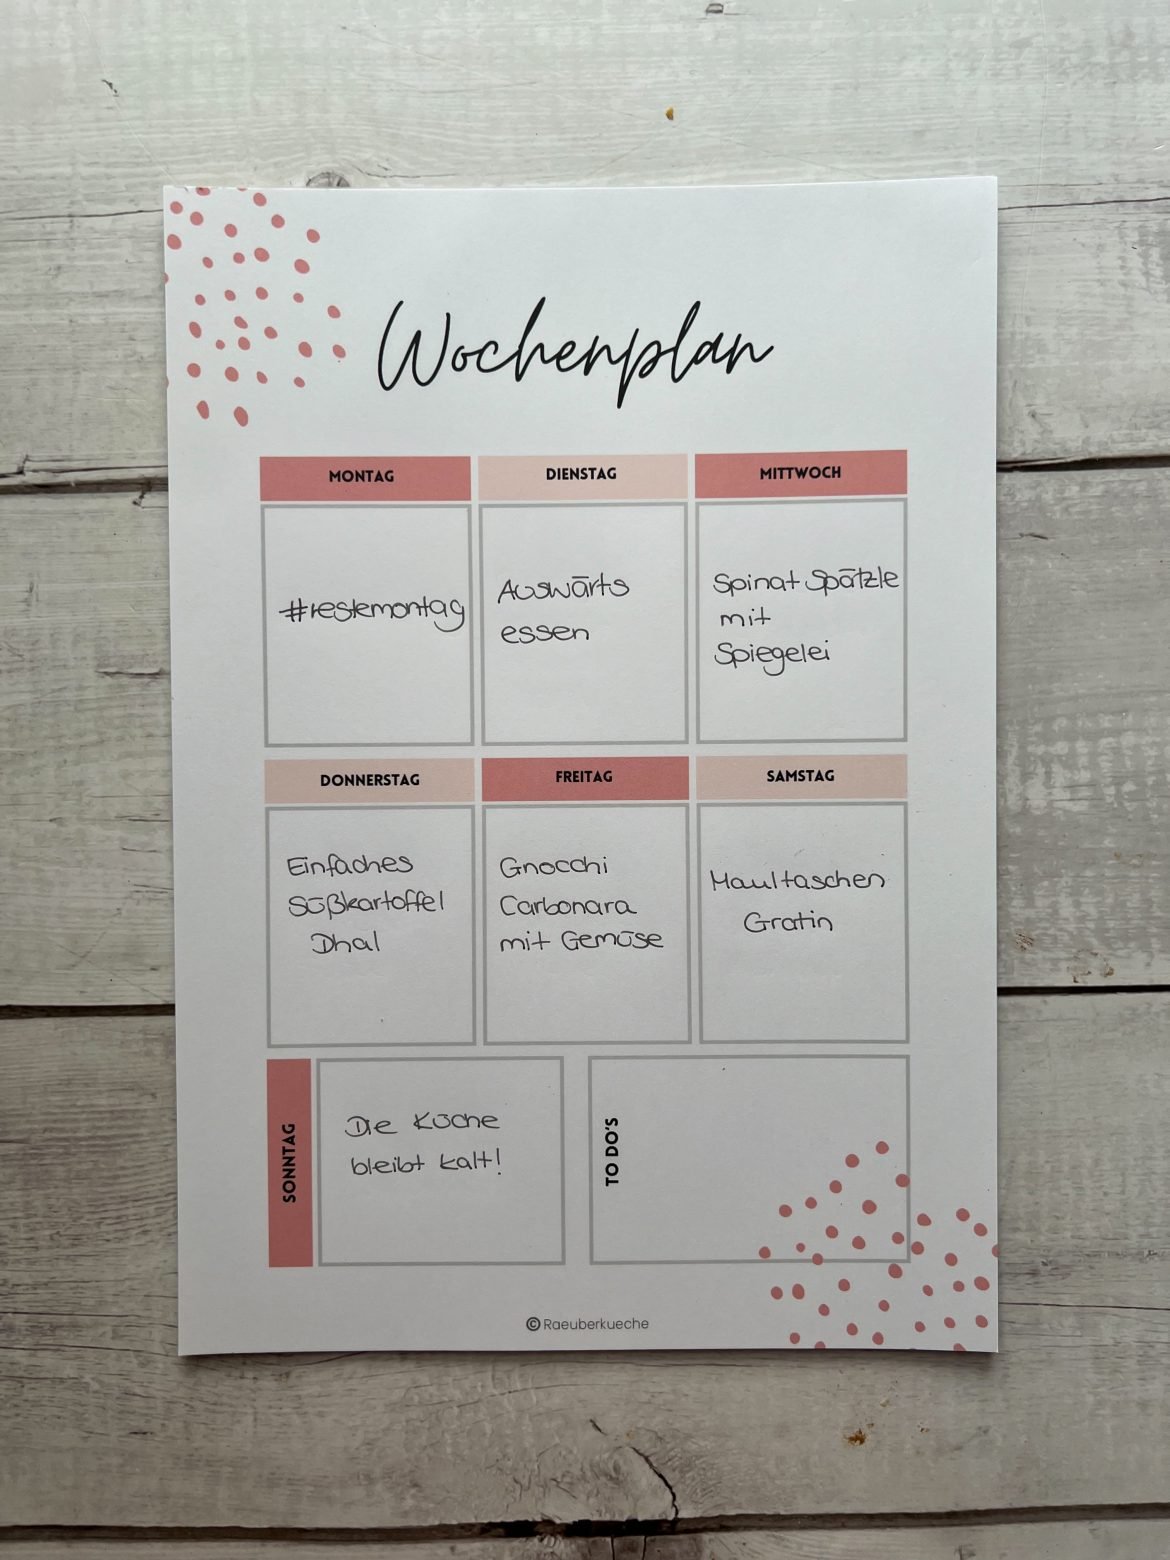 Wochenplan
MONTAG
#restemontag
DIENSTAG
Auswärts
essen
MITTWOCH
Spinat Spätzle
mit
Spiegelei
DONNERSTAG
Einfaches
Süßkartoffel
Dhal
FREITAG
Gnocchi
Carbonara
mit Gemüse
SAMSTAG
Maultaschen
Gratin
SONNTAG
Die Küche
bleibt kalt!
TO DO'S
© Raeuberkueche